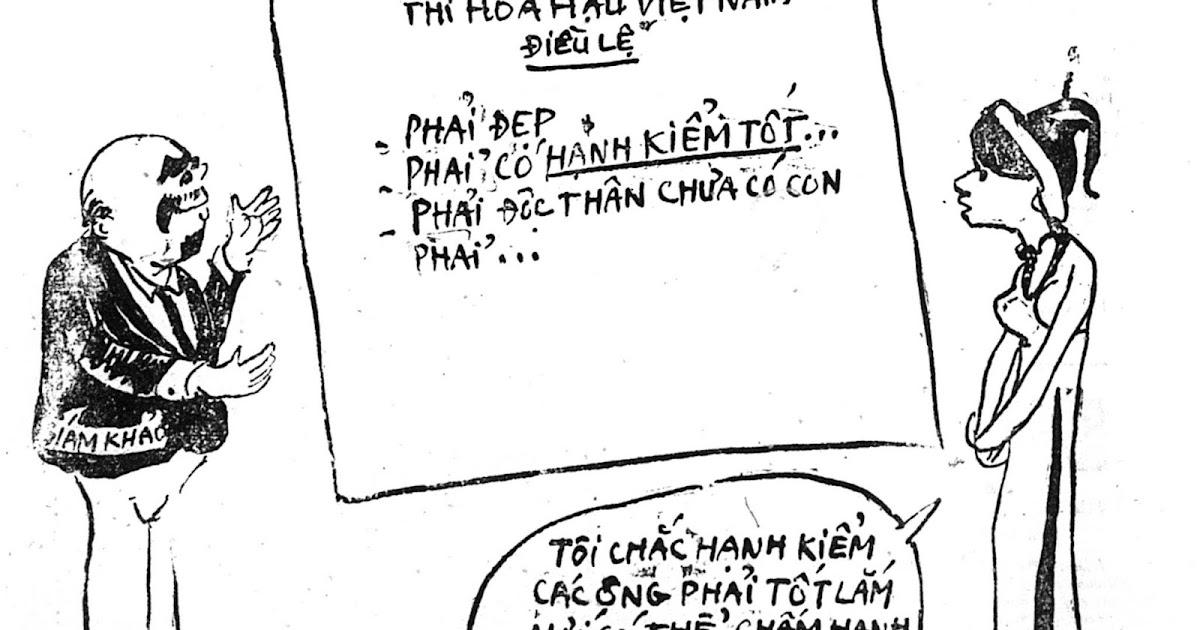 THI HOA HẬU VIỆT NAM
ĐIỀU LỆ
- PHẢI ĐẸP
- PHẢI CÓ HẠNH KIỂM TỐT...
- PHẢI ĐỘC THÂN CHƯA CÓ CON
PHẢI...
GIÁM KHẢO
TÔI CHẮC HẠNH KIỂM
CÁC ÔNG PHẢI TỐT LẮM
MỚI CÓ THỂ CHẤM HẠNH